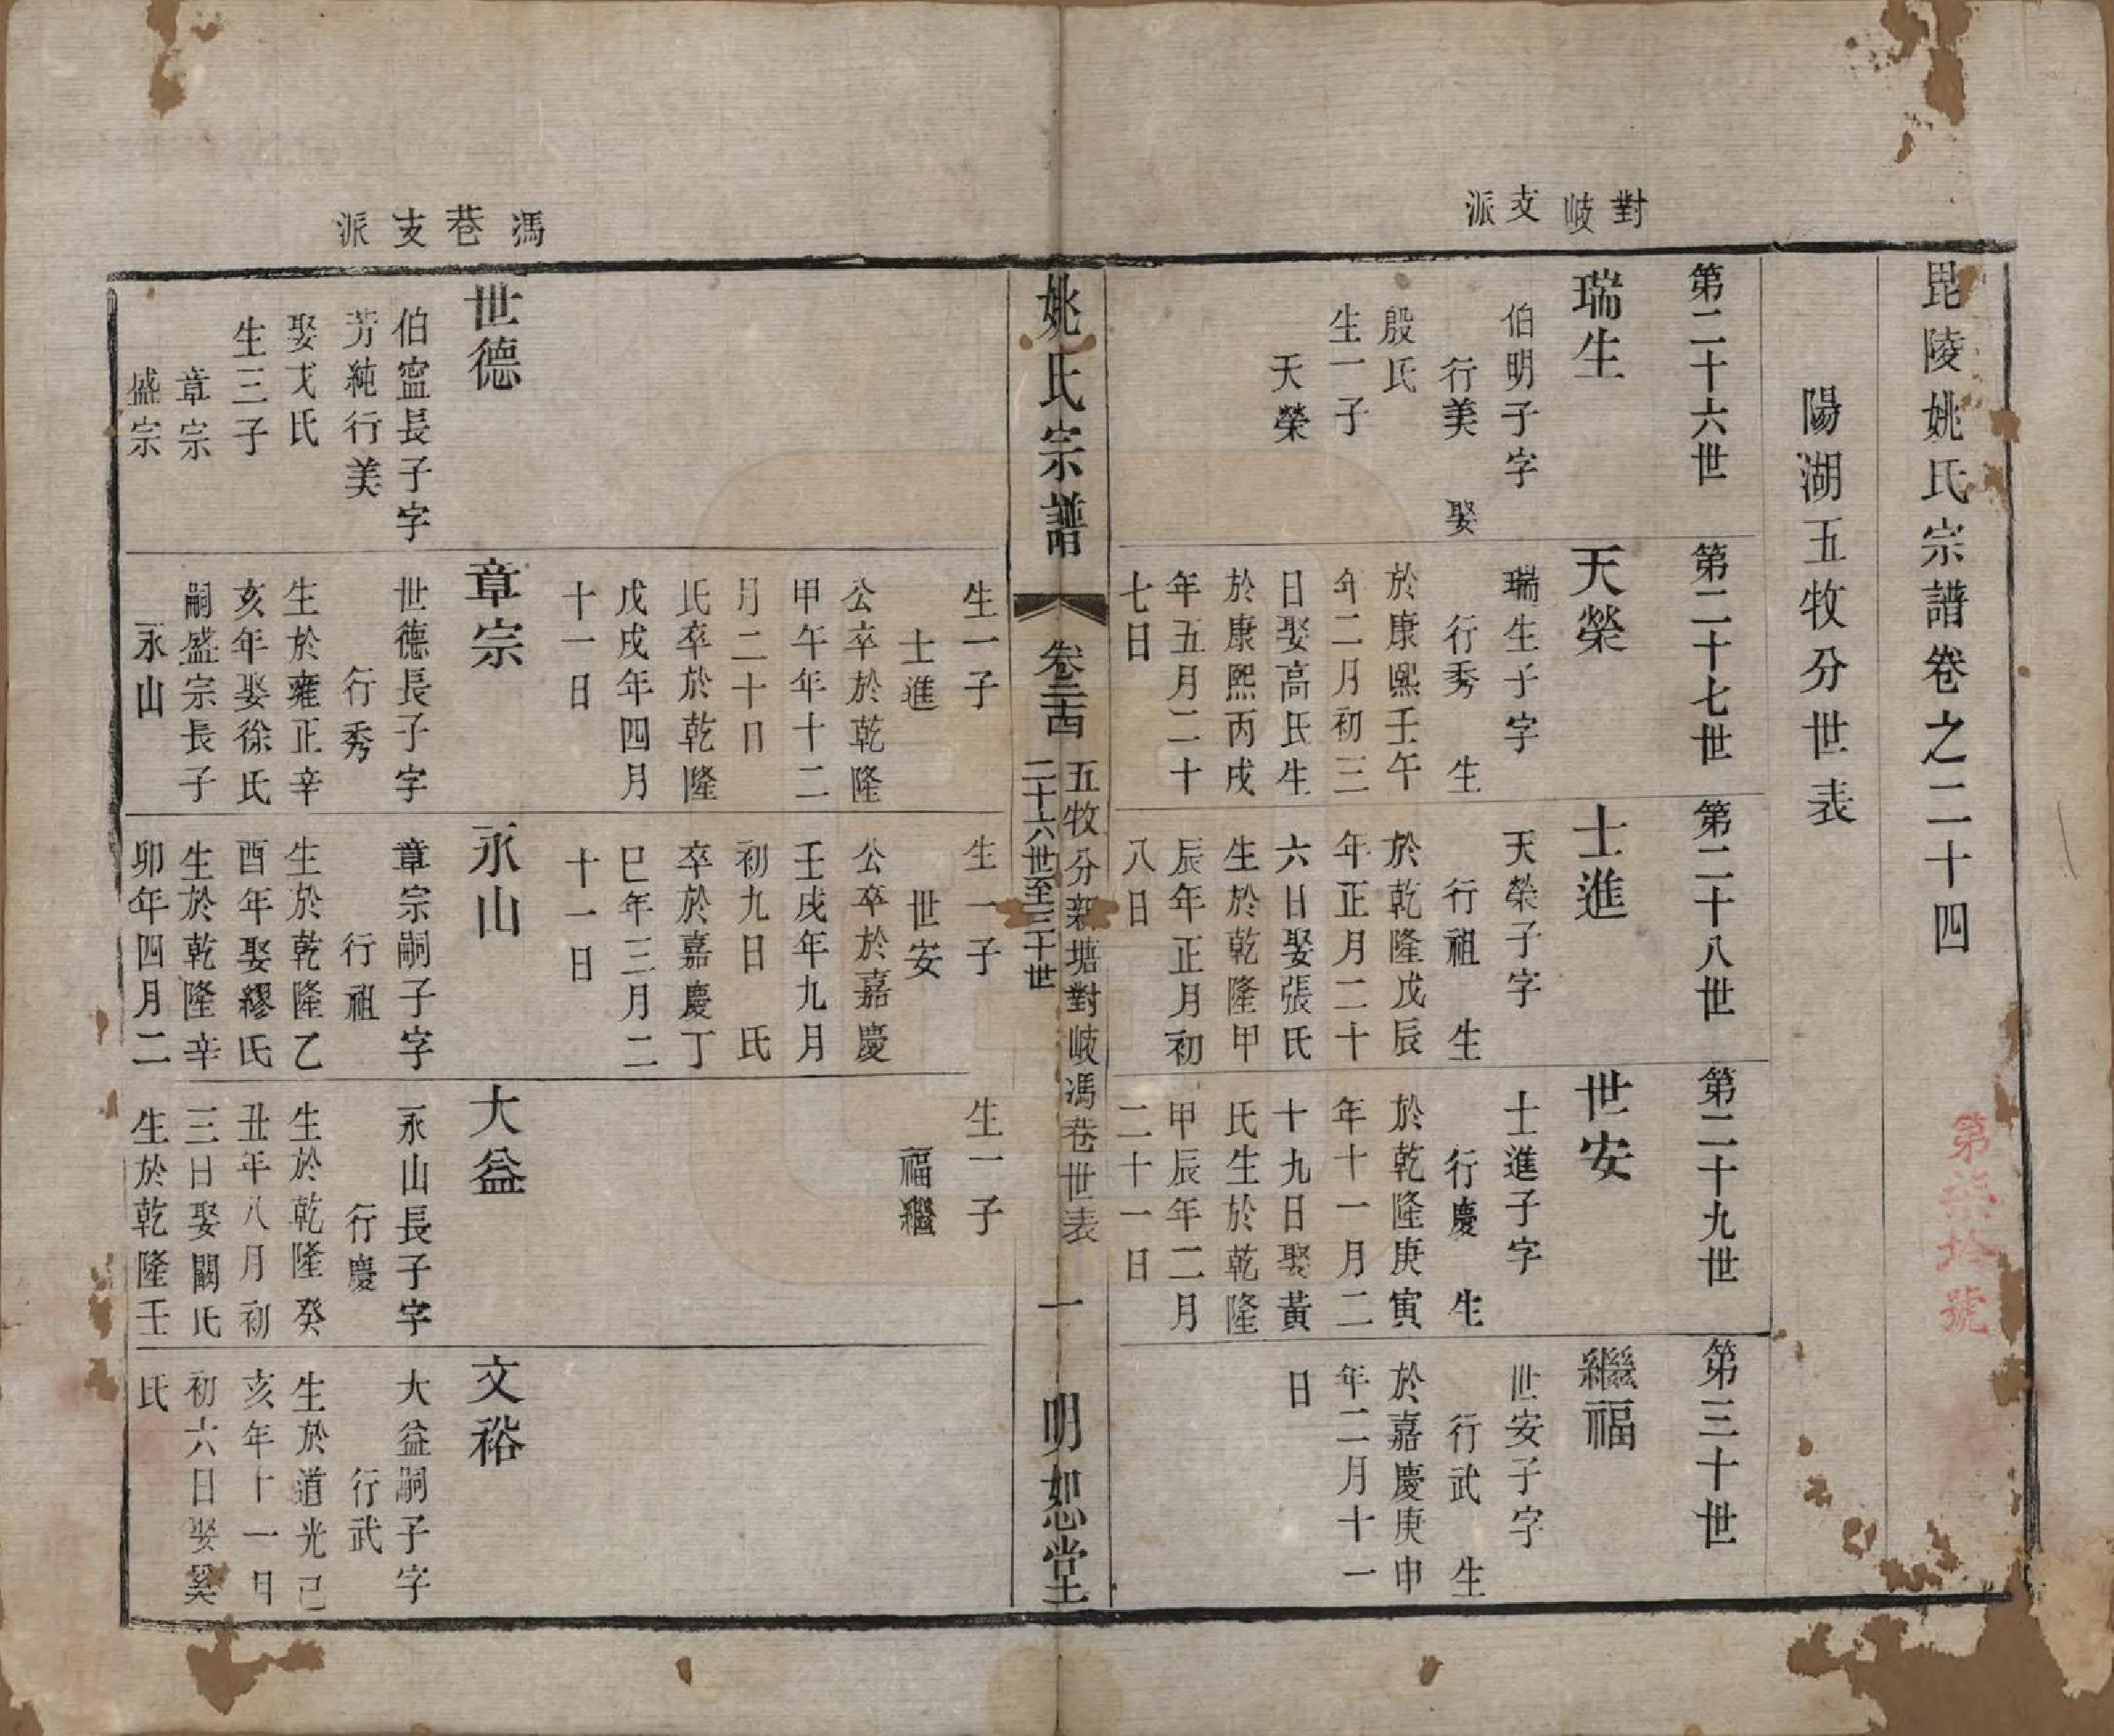 毘陵姚氏宗譜卷之二十四
陽湖五牧分世表
對岐支派
第二十六世
瑞生
伯明子字
行美　娶
殷氏
生一子
天榮
第二十七世
天榮
瑞生子字
行秀　生
於康熙壬午
年二月初三
日娶高氏生
於康熙丙戌
年五月二十
七日
第二十八世
士進
天榮子字
行祖　生
於乾隆戊辰
年正月二十
六日娶張氏
生於乾隆甲
辰年正月初
八日
第二十九世
世安
士進子字
行慶　生
於乾隆庚寅
年十一月二
十九日娶黃
氏生於乾隆
甲辰年二月
二十一日
第三十世
繼福
世安子字
行武　生
於嘉慶庚申
年二月十一
日
姚氏宗譜
卷二十四
五牧分新塘對岐馮巷世表
二十六世至三十世
一
明恕堂
生一子
士進
公卒於乾隆
甲午年十二
月二十日
氏卒於乾隆
戊戌年四月
十一日
生一子
世安
公卒於嘉慶
壬戌年九月
初九日　氏
卒於嘉慶丁
巳年三月二
十一日
生一子
福繼
馮巷支派
世德
伯寍長子字
芳純行美
娶戈氏
生三子
章宗
盛宗
章宗
世德長子字
行秀
生於雍正辛
亥年娶徐氏
嗣盛宗長子
永山
永山
章宗嗣子字
行祖
生於乾隆乙
酉年娶繆氏
生於乾隆辛
卯年四月二
大益
永山長子字
行慶
生於乾隆癸
丑年八月初
三日娶闞氏
生於乾隆壬
文裕
大益嗣子字
行武
生於道光己
亥年十一月
初六日娶奚
氏
第柒拾號